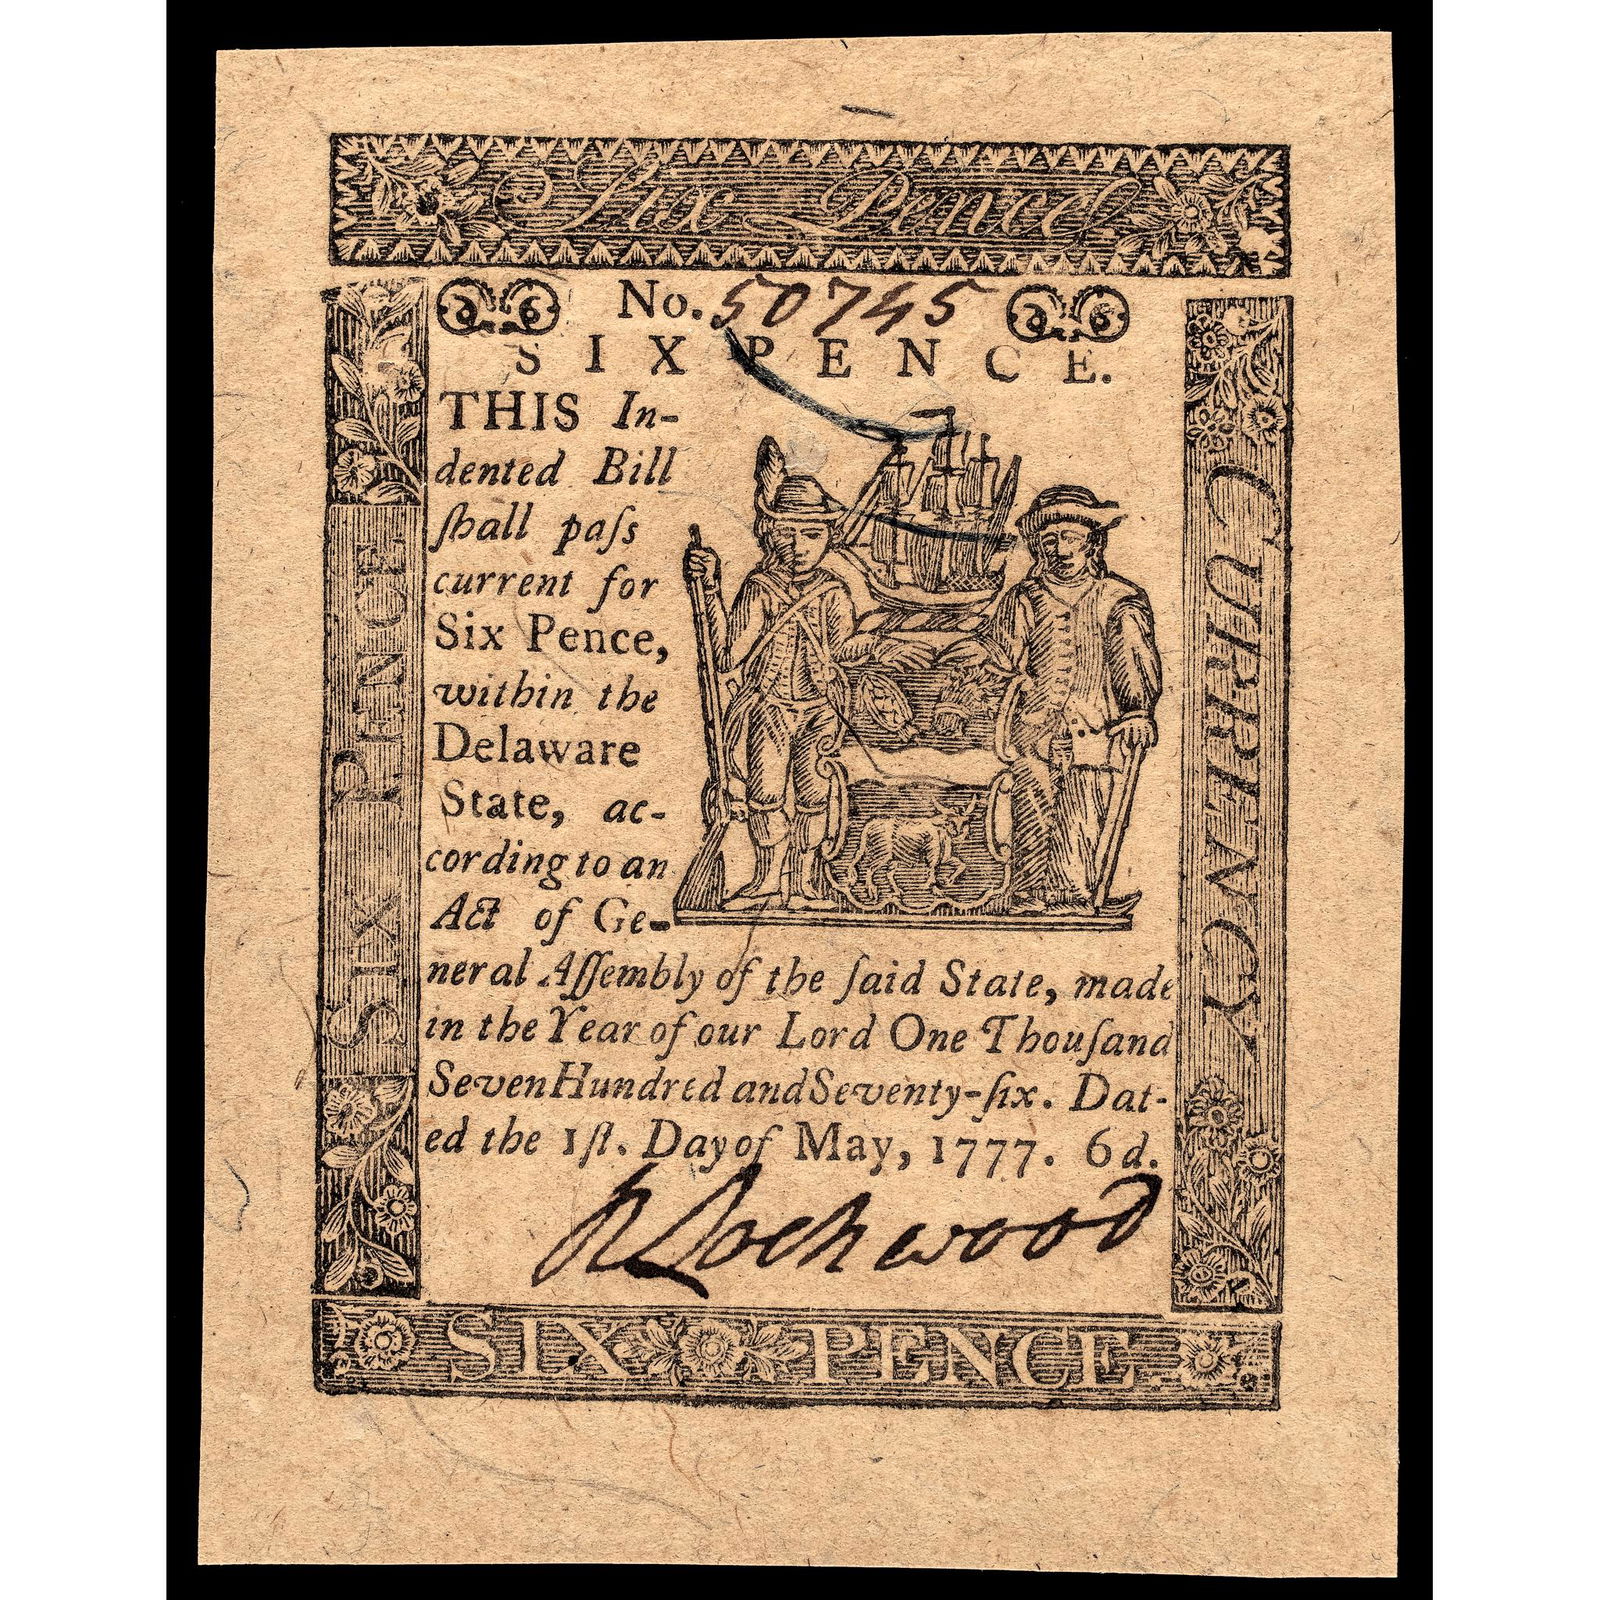 Six Pence
No. 50745
SIX PENCE.
THIS In-
dented Bill
ſhall paſs
current for
Six Pence,
within the
Delaware
State, ac-
cording to an
Act of Ge-
neral Aſſembly of the ſaid State, made
in the Year of our Lord One Thouſand
Seven Hundred and Seventy-ſix. Dat-
ed the 1ſt. Day of May, 1777. 6d.
SIX PENCE
CURRENCY
Lockwood
SIX PENCE